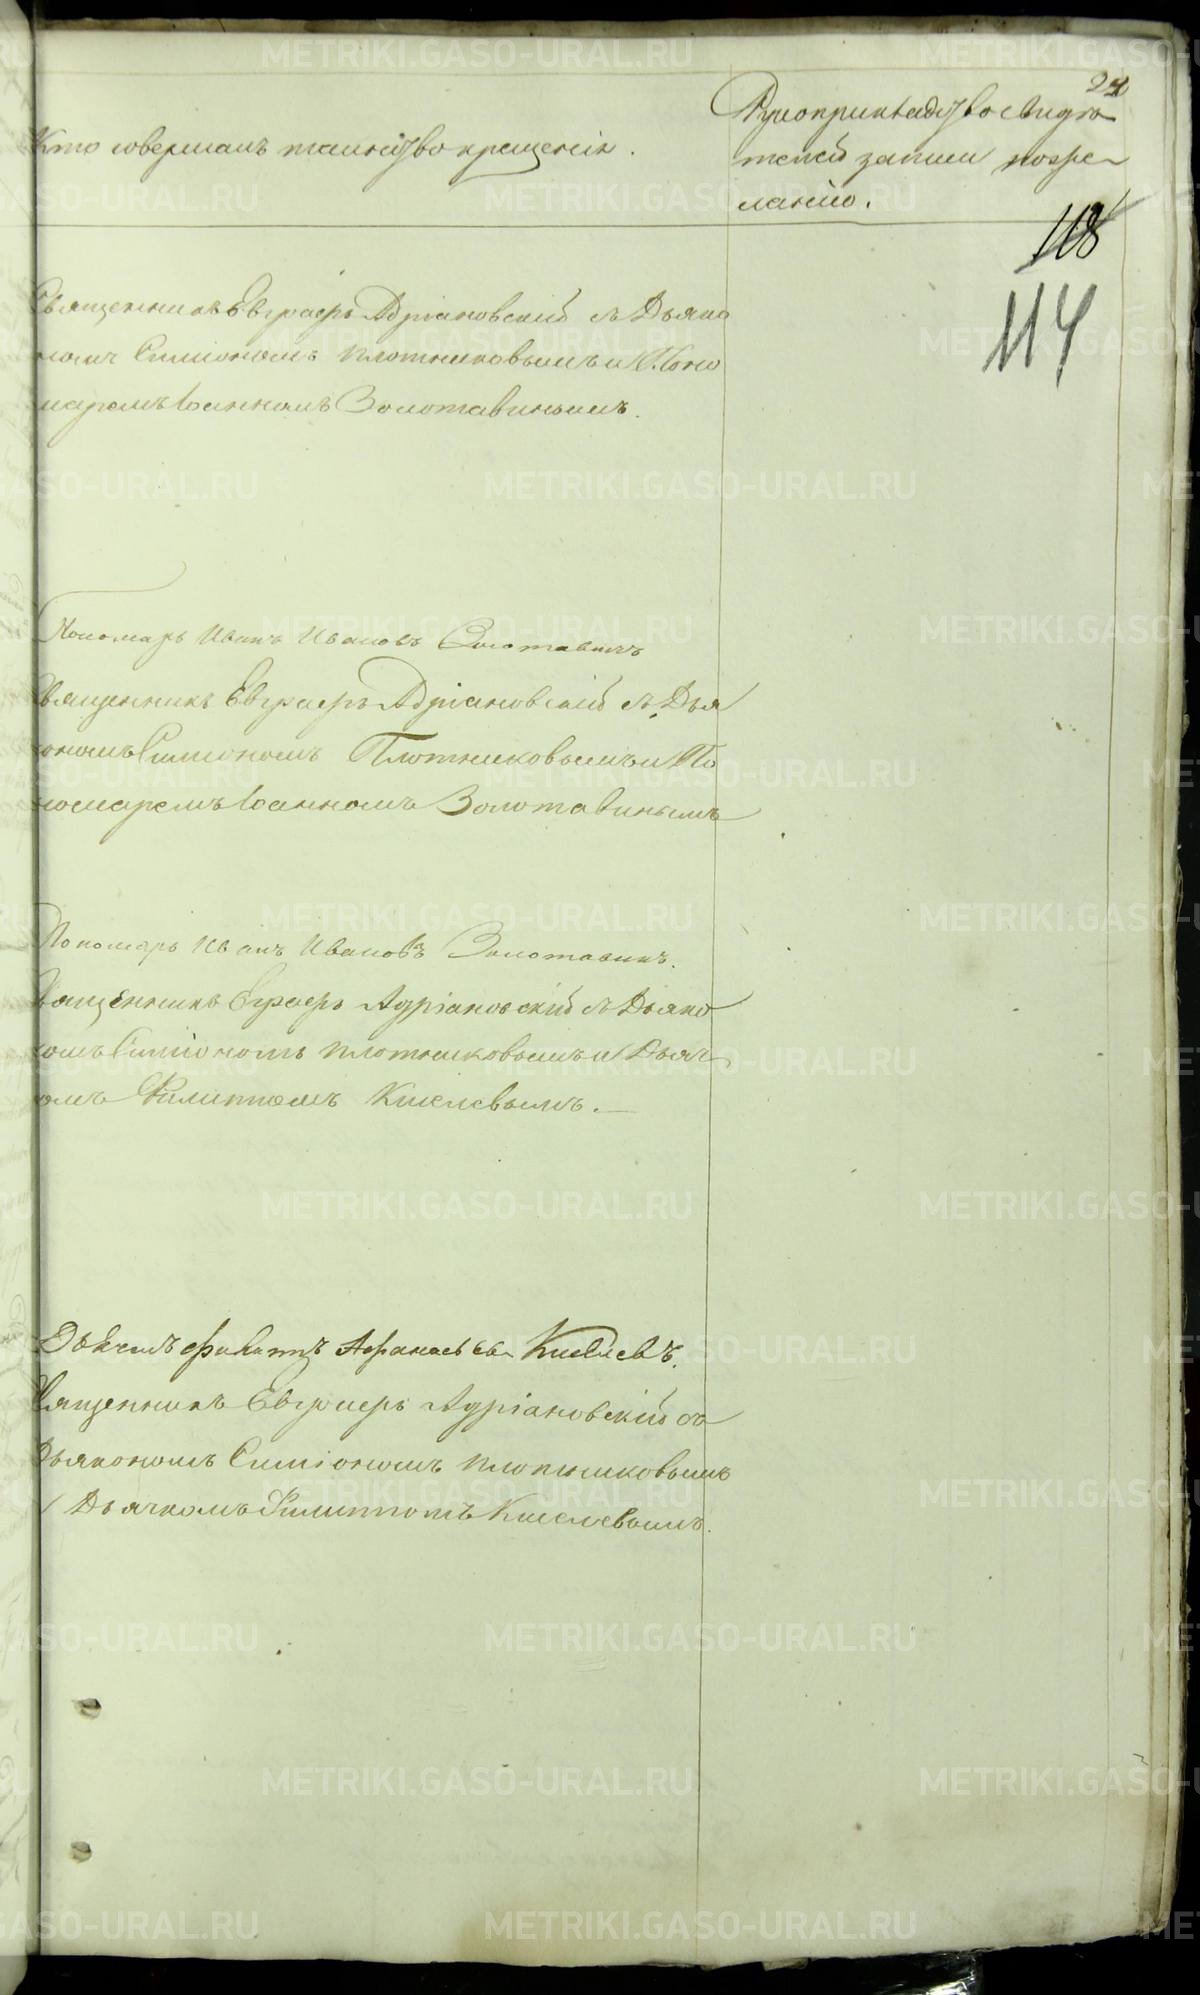 24
Кто совершалъ таинство крещенія.
Рукоприкладство свидѣ
телей записи по же
ланію.
118
114
Священникъ Евграфъ Адріановскій съ Дьяко
номъ Симіономъ Плотниковымъ и Поно
маремъ Іоанномъ Золотавинымъ.
Пономарь Иванъ Ивановъ Золотавинъ
Священникъ Евграфъ Адріановскій съ Дья
кономъ Симіономъ Плотниковымъ и По
номаремъ Іоанномъ Золотавинымъ
Пономарь Иванъ Ивановъ Золотавинъ.
Священникъ Еграфъ Адріановскій съ Дьяко
номъ Симіономъ Плотниковымъ и Дьяч
комъ Филиппомъ Киселевымъ.
Дьячекъ Филиппъ Афанасьевъ Киселевъ.
Священникъ Евграфъ Адріановскій съ
Дьякономъ Симіономъ Плотниковымъ
и Дьячкомъ Филиппомъ Киселевымъ.
METRIKI.GASO-URAL.RU